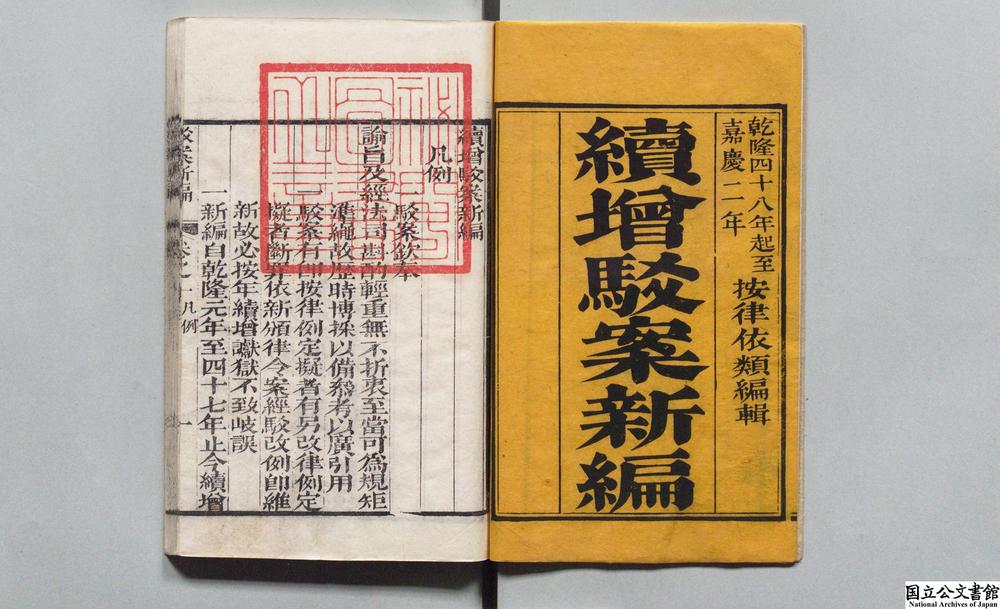 乾隆四十八年起至
嘉慶二年
按律依類編輯
續增駁案新編
續增駁案新編
凡例
一駁案欽奉
諭旨及經法司斟酌輕重無不折衷至當可為規矩
準繩故歷時博採以備叅考以廣引用
一駁案有即按律例定擬者有另改律例定
擬者斷罪依新頒律令案經駁改例即維
新故必按年續增讞獄不致岐誤
一新編自乾隆元年至四十七年止今續增
駁案新編 卷之一 凡例 一
秘閣圖書之章
国立公文書館
National Archives of Japan